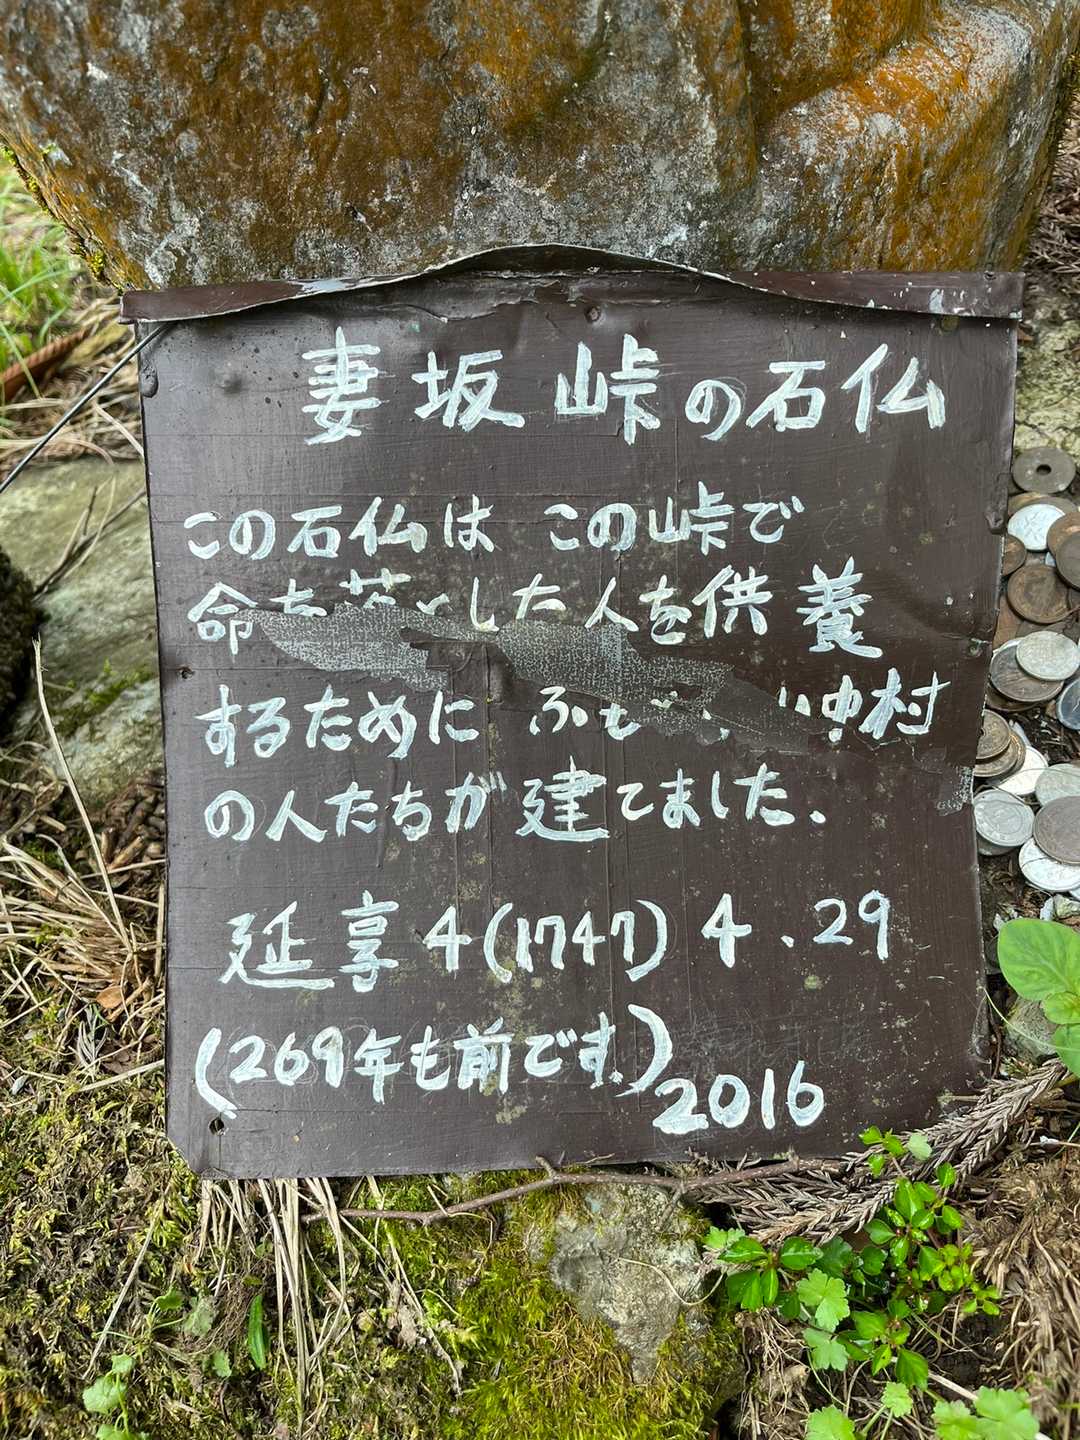 妻坂峠の石仏
この石仏は この峠で
命を落とした人を供養
するために ふも 中村
の人たちが建てました.
延享4(1747) 4.29
(269年も前です.)
2016